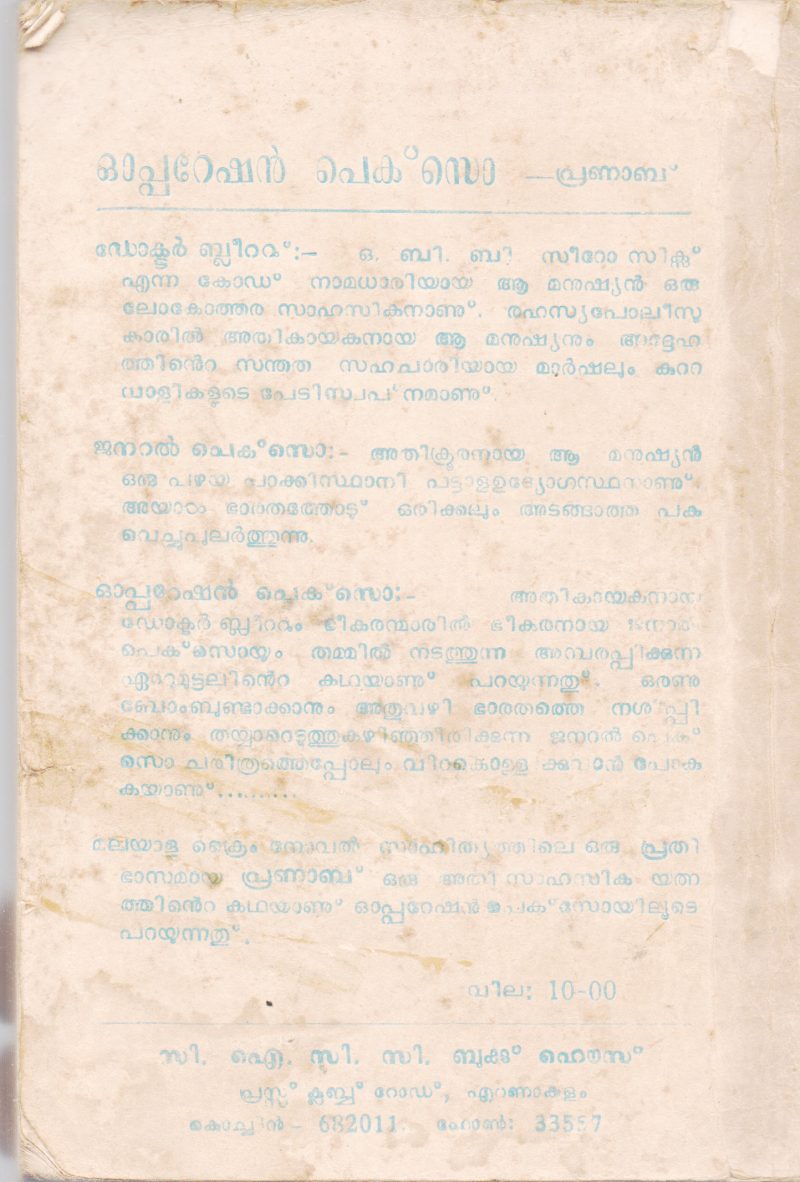 ഓപ്പറേഷൻ പെക്‌സൊ —പ്രണാബ്
ഡോക്ടർ ബ്ലീറമ്:— ഒ. ബി. ബി. സീറോ സിക്സ്
എന്ന കോഡ് നാമധാരിയായ ആ മനുഷ്യൻ ഒരു
ലോകോത്തര സാഹസികനാണു്. രഹസ്യപോലീസു
കാരിൽ അതികായകനായ ആ മനുഷ്യനും അദ്ദേഹ
ത്തിൻെറ സന്തത സഹചാരിയായ മാർഷലും കുററ
വാളികളുടെ പേടിസ്വപ്നമാണു്.
ജനറൽ പെക്‌സൊ:— അതിക്രൂരനായ ആ മനുഷ്യൻ
ഒരു പഴയ പാക്കിസ്ഥാനി പട്ടാളഉദ്യോഗസ്ഥനാണു്.
അയാൾ ഭാരതത്തോടു് ഒരിക്കലും അടങ്ങാത്ത പക
വെച്ചുപുലർത്തുന്നു.
ഓപ്പറേഷൻ പെക്‌സൊ:— അതികായകനായ
ഡോക്ടർ ബ്ലീറമും ഭീകരന്മാരിൽ ഭീകരനായ ജനറൽ
പെക്‌സൊയും തമ്മിൽ നടത്തുന്ന അമ്പരപ്പിക്കുന്ന
ഏററുമുട്ടലിൻെറ കഥയാണു് പറയുന്നതു്. ഒരണു
ബോംബുണ്ടാക്കാനും അതുവഴി ഭാരതത്തെ നശിപ്പി
ക്കാനും തയ്യാറെടുത്തുകഴിഞ്ഞിരിക്കുന്ന ജനറൽ പെക്
സൊ ചരിത്രത്തെപ്പോലും വിറകൊള്ളിക്കുവാൻ പോകു
കയാണു്..........
മലയാള ക്രൈം നോവൽ സാഹിത്യത്തിലെ ഒരു പ്രതി
ഭാസമായ പ്രണാബ് ഒരു അതിസാഹസിക യത്ന
ത്തിൻെറ കഥയാണു് ഓപ്പറേഷൻ പെക്‌സോയിലൂടെ
പറയുന്നതു്.
വില: 10-00
സി. ഐ. സി. സി. ബുക്കു് ഹൌസ്
പ്രസ്സ് ക്ലബ്ബ് റോഡ്, എറണാകുളം
കൊച്ചിൻ - 682011. ഫോൺ: 33557